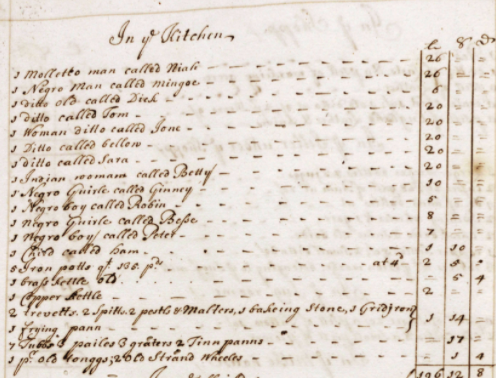 In yᵉ Kitchen
£ S D
1 Molletto man called Niah - 26 = =
1 Negro Man called mingoe - 26 = =
1 ditto old called Dick - 8 = =
1 ditto called Tom - 20 = =
1 Woman ditto called Jone - 20 = =
1 Ditto called bellow - 20 = =
1 ditto called Sara - 20 = =
1 Indjan womam called Betty - 20 = =
1 Negro Guirle called Ginney - 10 = =
1 Negro boy called Robin - 5 = =
1 negro Guirle called Besse - 8 = =
1 Negro boy called Peter - 7 = =
1 Child called Ham - 1 10 =
5 Iron potts qᵗ 135 pᵈ - at 4ᵈ 2 5 =
1 brass kettle old - = 5 4
1 Copper Kettle - 2 = =
2 trevetts. 2 Spitts 2 pestls & Malters, 1 bakeing Stone, 1 Gridjron
1 frying pann - 1 14 =
7 Tubbs 2 pailes 3 graters 2 Tinn panns - = 17 =
1 pʳ old tonggs; 2 old Strand Wheeles - = 1 4
£ 196 12 8